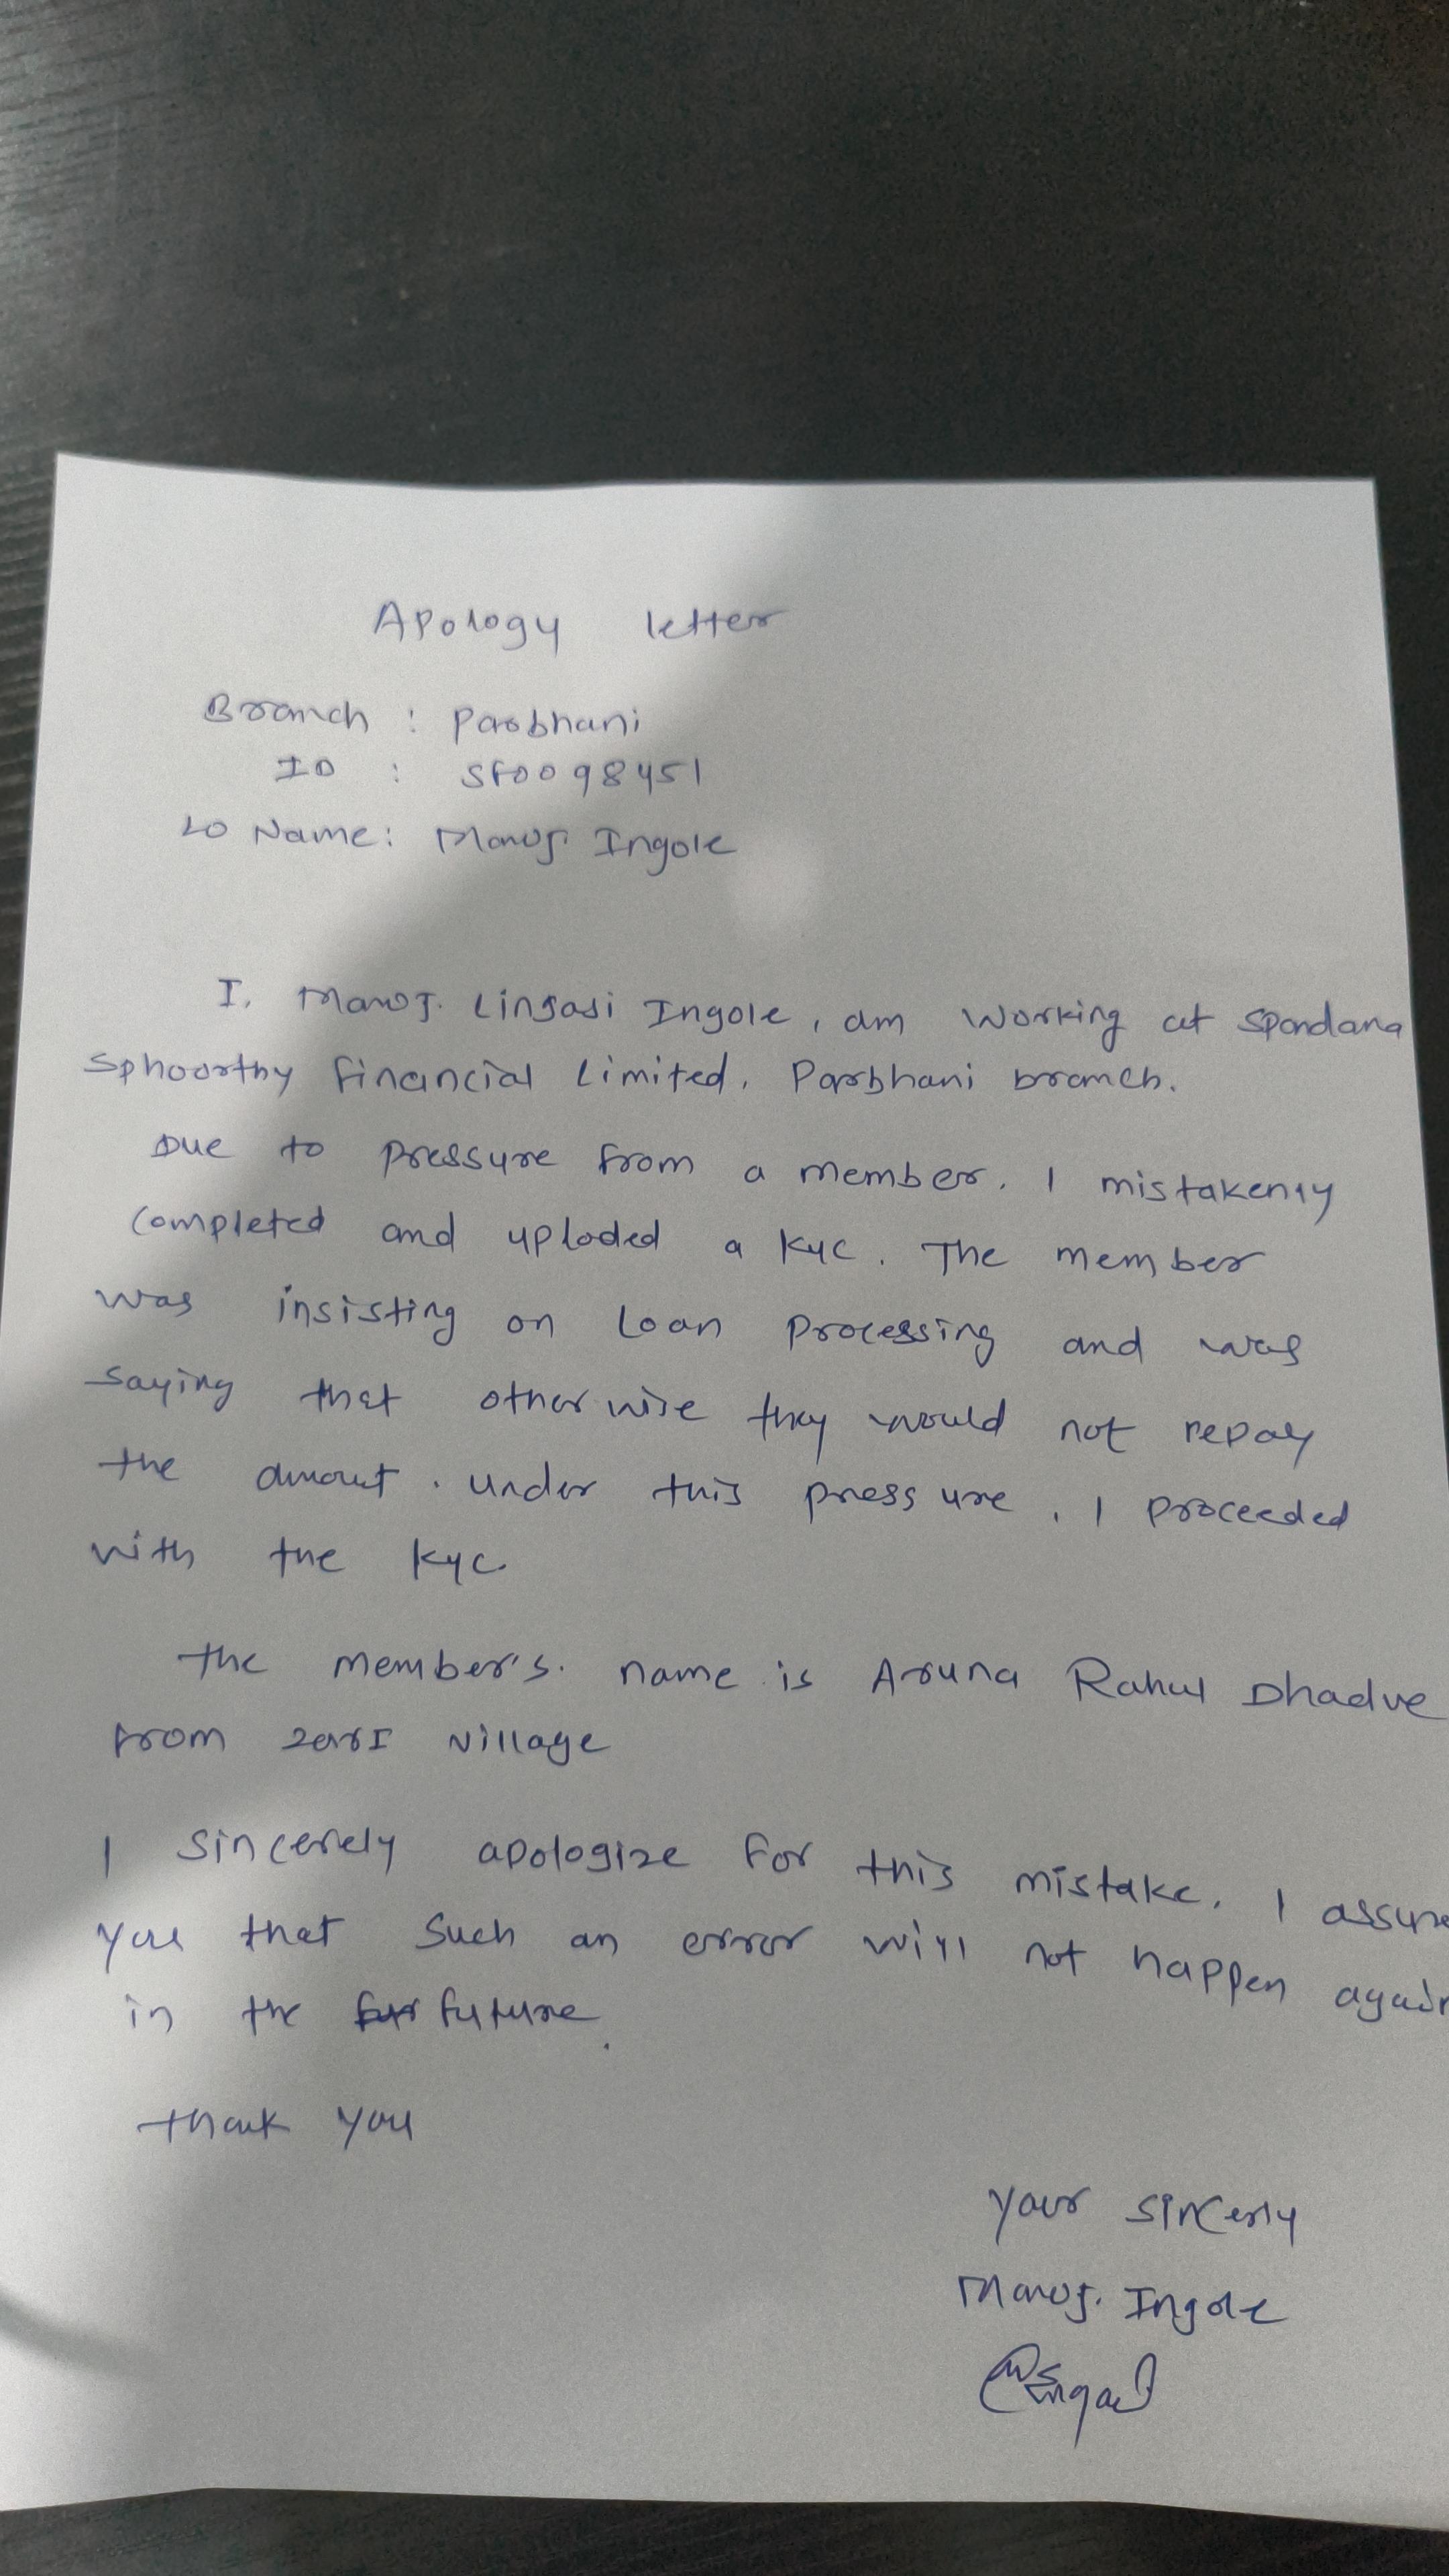 Apology letter
Branch : Parbhani
ID : SF0098451
LO Name: Manoj Ingole
I. Manoj. Lingaji Ingole, am working at Spandana
Sphoorthy Financial Limited, Parbhani branch.
Due to pressure from a member. I mistakenly
completed and uploded a KYC. The member
was insisting on Loan processing and was
saying that otherwise they would not repay
the amout. under this pressure, I proceeded
with the KYC
the member's. name is Aruna Rahul Dhadve
from zarI village
I sincerely apologize for this mistake. I assure
you that such an error will not happen again
in the future.
thank you
your sincerly
Manoj. Ingole